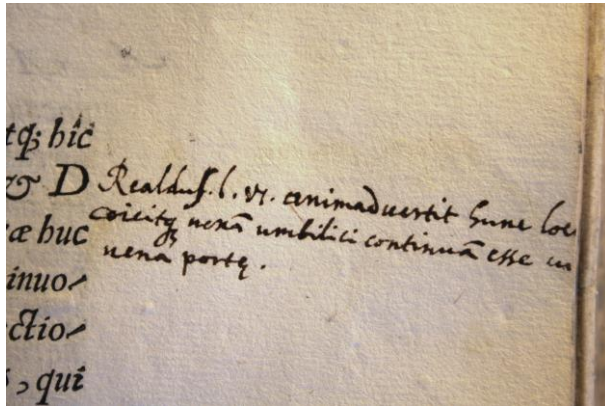 tq; hic
& D
æ huc
inuo-
ctio-
, qui
Realdus. l. vi. animaduertit hunc loc
coicitq; uenã umbilici continuã esse cu
uena portę.